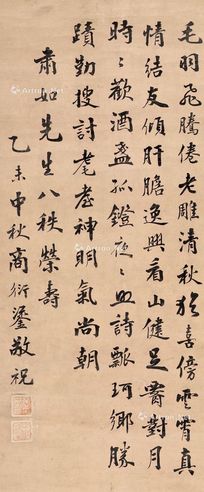 毛羽飛騰倦老雕清秋猶喜傍雲霄真
情結友傾肝膽逸興看山健足對月
時〻歡酒盞孤鐙夜〻詩瓢珂鄉勝
蹟勤搜討耄耋神明氣尚朝
肅如先生八秩榮壽
乙未中秋商衍鎏敬祝